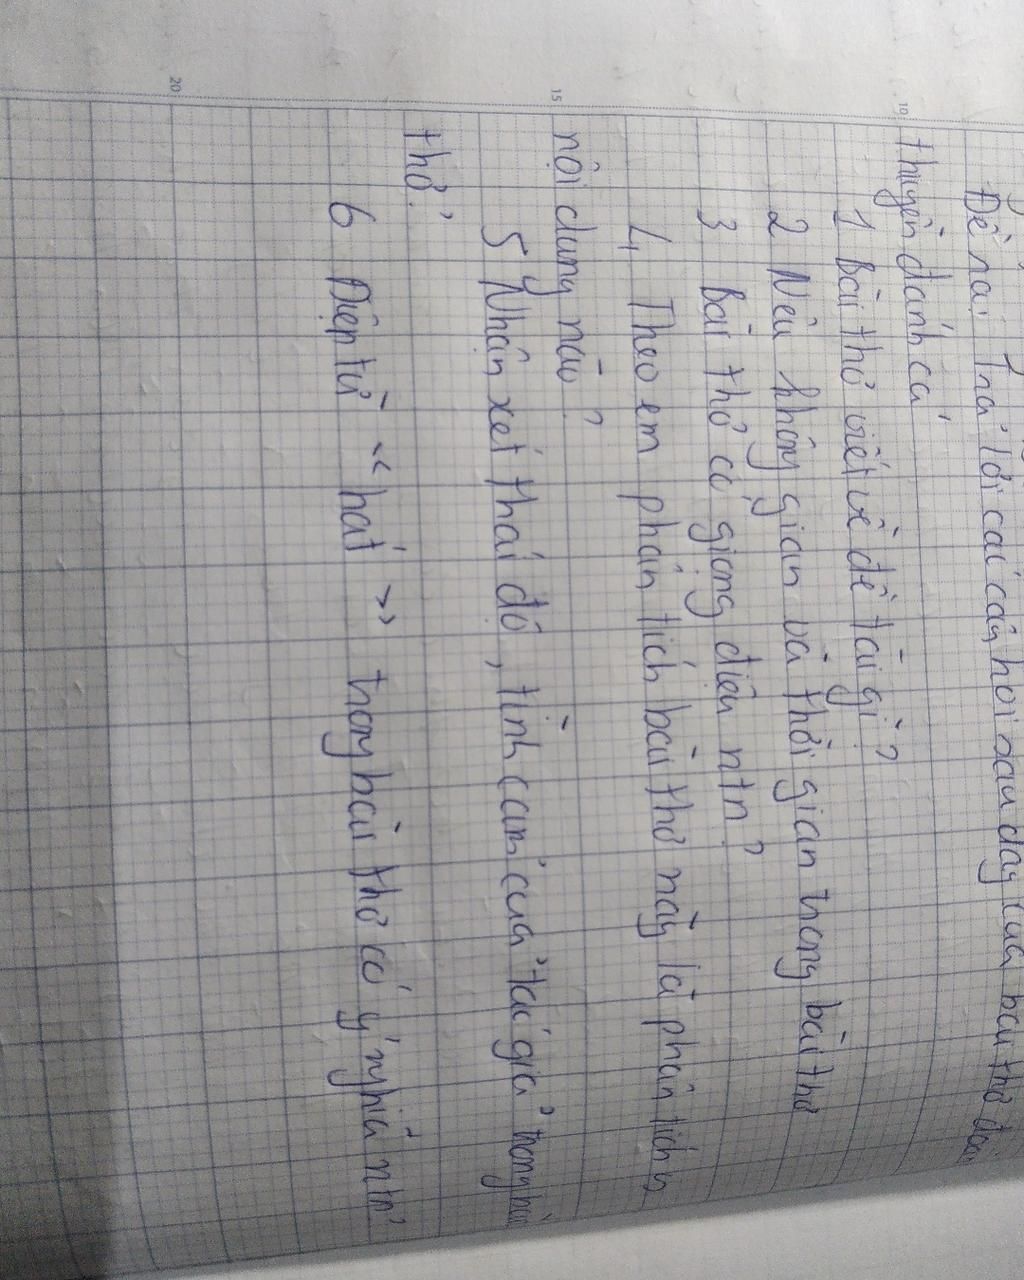 Đề rai Trả lời các câu hỏi sau đây của bài thơ đoàn
thuyền đánh cá
1 Bài thơ viết về đề tài gì?
2 Nêu không gian và thời gian trong bài thơ
3 Bài thơ có giọng điệu ntn?
4 Theo em phân tích bài thơ này là phân tích
nội dung nào?
5 Nhận xét thái độ, tình cảm của tác giả trong bài
thơ?
6 Điệp từ "hát" trong bài thơ có ý nghĩa ntn?
10
15
20